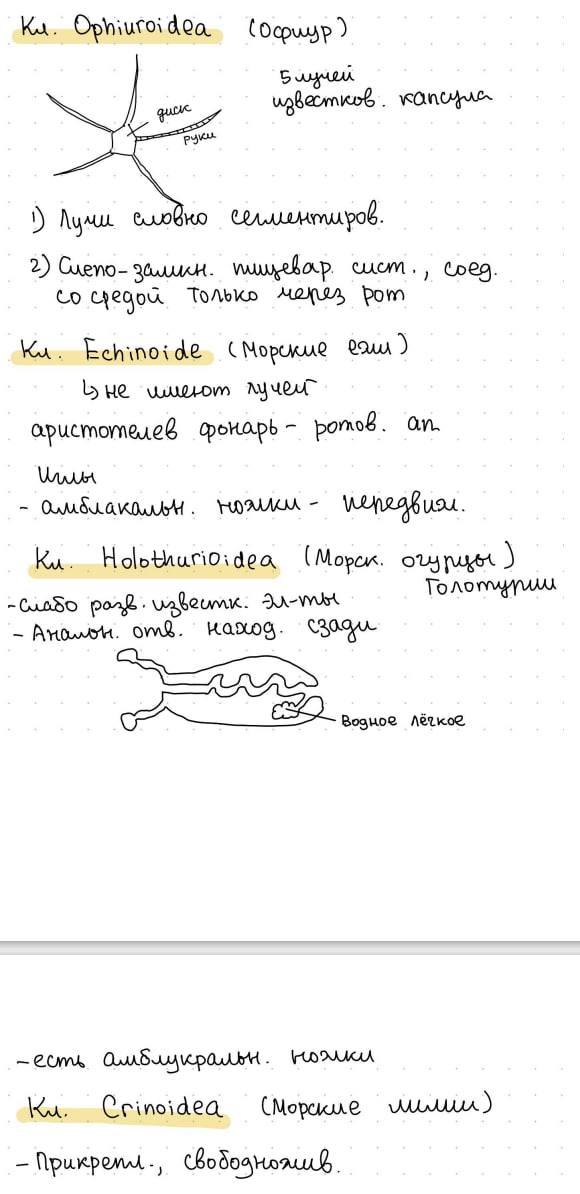 Кл. Ophiuroidea (Офиур)
5 лучей
известков. капсула
диск
руки
1) Лучи словно сегментиров.
2) Слепо-замкн. пищевар. сист., соед.
со средой только через рот
Кл. Echinoide (Морские ежи)
↳ не имеют лучей
аристотелев фонарь - ротов. ап
Иглы
- амблакальн. ножки - передвиж.
Кл. Holothurioidea (Морск. огурцы)
Голотурии
- Слабо разв. известк. эл-ты
- Анальн. отв. наход. сзади
Водное лёгкое
- есть амблукральн. ножки
Кл. Crinoidea (Морские лилии)
- Прикрепл., свободножив.